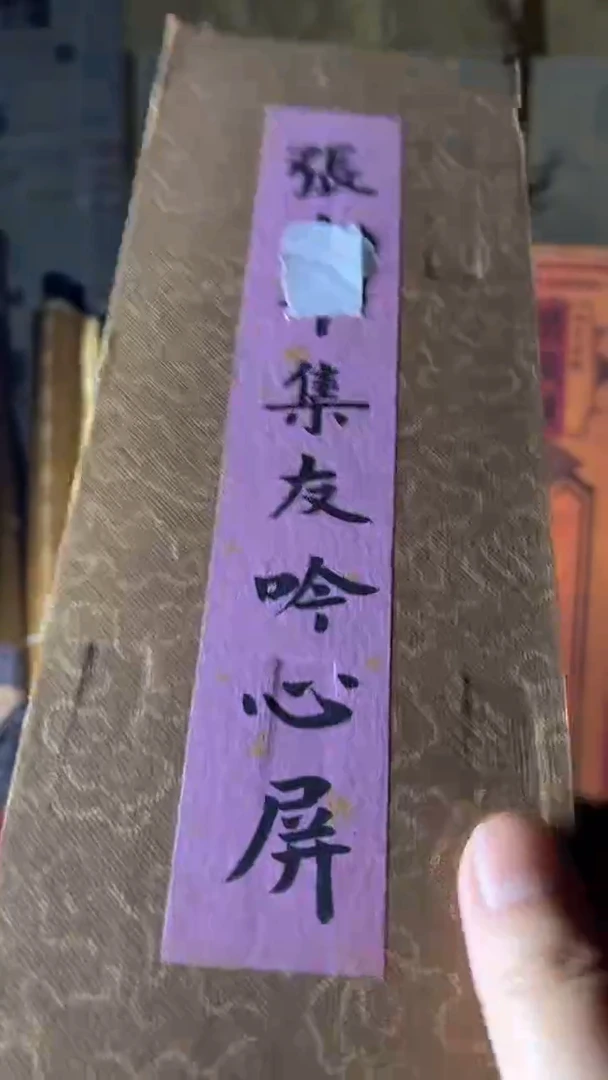 張
集友吟心屏